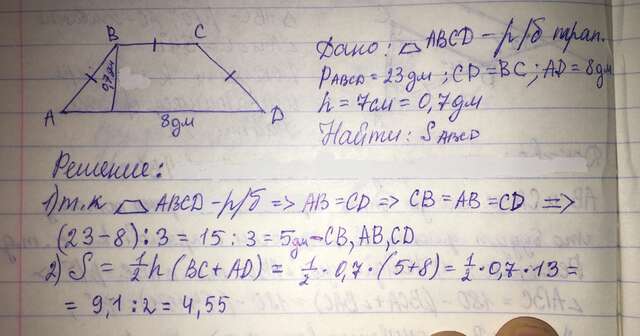 B C
0,7дм
A 8дм D
Дано: ABCD - р/б трап.
PABCD = 23дм ; CD = BC ; AD = 8дм
h = 7см = 0,7дм
Найти: SABCD
Решение:
1) т.к ABCD - р/б => AB = CD => CB = AB = CD =>
(23-8) : 3 = 15 : 3 = 5дм - CB, AB, CD
2) S = 1/2 h (BC + AD) = 1/2 · 0,7 · (5+8) = 1/2 · 0,7 · 13 =
= 9,1 : 2 = 4,55